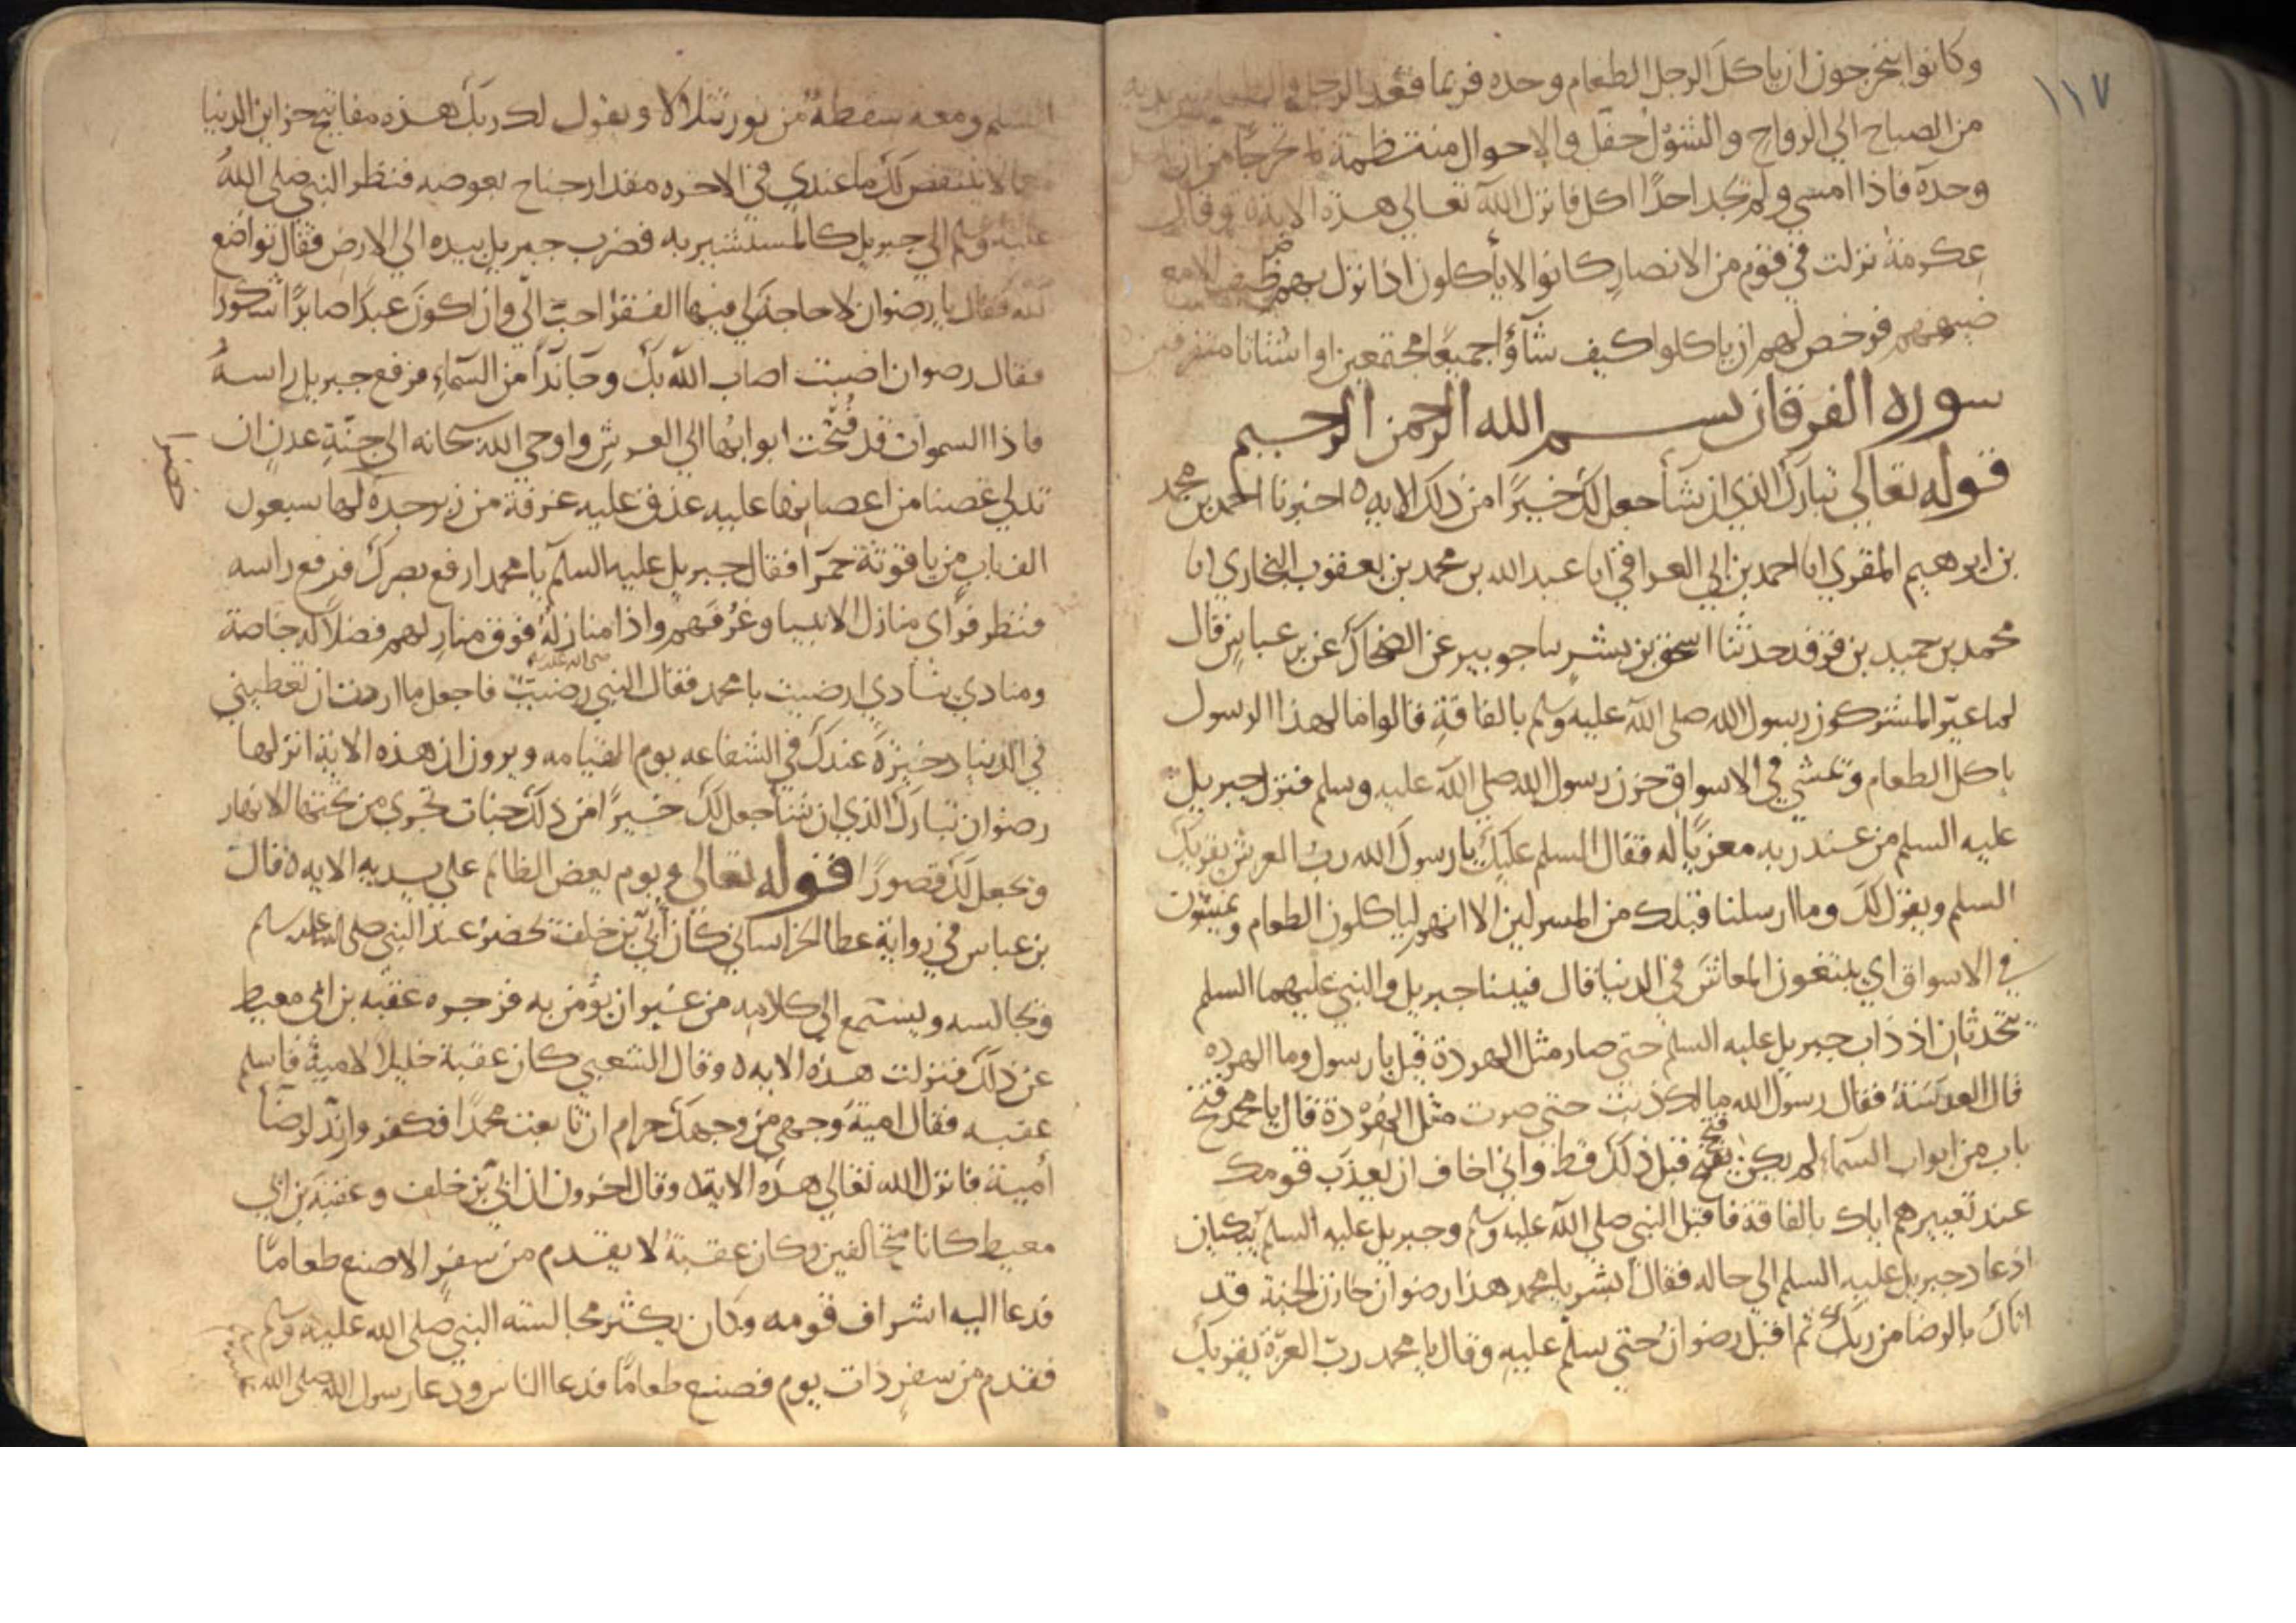 ١١٧
وكانوا يتحرجون ان ياكل الرجل الطعام وحده فربما قعد الرجل والطعام بين يديه
من الصباح الي الرواح والشول حفل والاحوال منتظمة تحرجا من ان ياكل
وحده فاذا امسي ولم يجد احدا اكل فانزل الله تعالي هذه الايه ٥ وقال
عكرمة نزلت في قوم من الانصار كانوا لا يأكلون اذا نزل بهم ضيف الا مع
ضيفهم فرخص لهم ان ياكلوا كيف شآؤا جميعا مجتمعين او اشتاتا متفرقين
سوره الفرقان بسم الله الرحمن الرحيم
قوله تعالي تبارك الذي ان شأ جعل لك خيرا من ذلك الايه ٥ اخبرنا احمد بن محمد
بن ابرهيم المقري انا احمد بن ابي العراقي انا عبد الله بن محمد بن يعقوب البخاري انا
محمد بن حميد بن فرقد حدثنا اسحق بن بشر نا جويبر عن الضحاك عن بن عباس قال
لما عيّر المشركون رسول الله صلي الله عليه وسلم بالفاقة قالوا ما لهذا الرسول
ياكل الطعام ويمشي في الاسواق حزن رسول الله صلي الله عليه وسلم فنزل جبريل
عليه السلم من عند ربه معزيا له فقال السلم عليك يا رسول الله رب العرش يقريك
السلم ويقول لك وما ارسلنا قبلك من المرسلين الا انهم لياكلون الطعام ويمشون
في الاسواق اي يبتغون المعاش في الدنيا قال فبينا جبريل والنبي عليهما السلم
يتحدثان اذ ذاب جبريل عليه السلم حتي صار مثل الهردة قيل يا رسول وما الهرده
قال العدسة فقال رسول الله مالك ذبت حتي صرت مثل الهردة قال يا محمد فتح
باب من ابواب السماء لم يكن فتح قبل ذلك قط واني اخاف ان يعذب قومك
عند تعييرهم اياك بالفاقة فاقبل النبي صلي الله عليه وسلم وجبريل عليه السلم يبكيان
اذ عاد جبريل عليه السلم الي حاله فقال ابشر يا محمد هذا رضوان خازن الجنة قد
اتاك بالرضا من ربك ثم اقبل رضوان حتي سلم عليه وقال يا محمد رب العزة يقريك
السلم ومعه سفطة من نور تتلالا ويقول لك ربك هذه مفاتيح خزاين الدنيا
لا ينتقص لك ما عندي في الاخره مقدار جناح بعوضه فنظر النبي صلي الله
عليه وسلم الي جبريل كالمستشير به فضرب جبريل بيده الي الارض فقال تواضع
لله فقال يا رضوان لا حاجة لي فيها الفقر احب الي وان اكون عبدا صابرا شكورا
فقال رضوان اصبت اصاب الله بك وجآ ندآ من السماء فرفع جبريل راسه
فاذا السموات قد فتحت ابوابها الي العرش واوحي الله سبحانه الي جنة عدن ان
تدلي غصنا من اغصانها عليه عذق عليه غرفة من زبرجدة لها سبعون
الف باب من ياقوتة حمرا فقال جبريل عليه السلم يا محمد ارفع بصرك فرفع راسه
فنظر فراي منازل الانبيا وغرفهم واذا منازله فوق منازلهم فضلا له خاصة
ومنادي ينادي ارضيت يا محمد فقال النبي صلي الله عليه رضيت فاجعل ما اردت ان تعطيني
في الدنيا ذخيرة عندك في الشفاعه يوم القيامه ويرون ان هذه الاية انزلها
رضوان تبارك الذي ان شأ جعل لك خيرا من ذلك جنات تجري من تحتها الانهار
ويجعل لك قصورا قوله تعالي ويوم يعض الظالم علي يديه الايه ٥ قال
بن عباس في رواية عطا الخراساني كان ابي بن خلف يحضر عند النبي صلي الله عليه وسلم
ويجالسه ويستمع الي كلامه من غير ان يؤمن به فزجره عقبه بن ابي معيط
عن ذلك فنزلت هذه الايه ٥ وقال الشعبي كان عقبة خليلا لامية فاسلم
عقبه فقال امية وجهي من وجهك حرام ان تابعت محمدا فكفر وارتد لرضا
أمية فانزل الله تعالي هذه الاية ٥ وقال اخرون ان ابي بن خلف وعقبة بن ابي
معيط كانا متحالفين وكان عقبة لا يقدم من سفر الا صنع طعاما
فدعا اليه اشراف قومه وكان يكثر مجالسته النبي صلي الله عليه وسلم
فقدم من سفر ذات يوم فصنع طعاما فدعا الناس ودعا رسول الله صلي الله